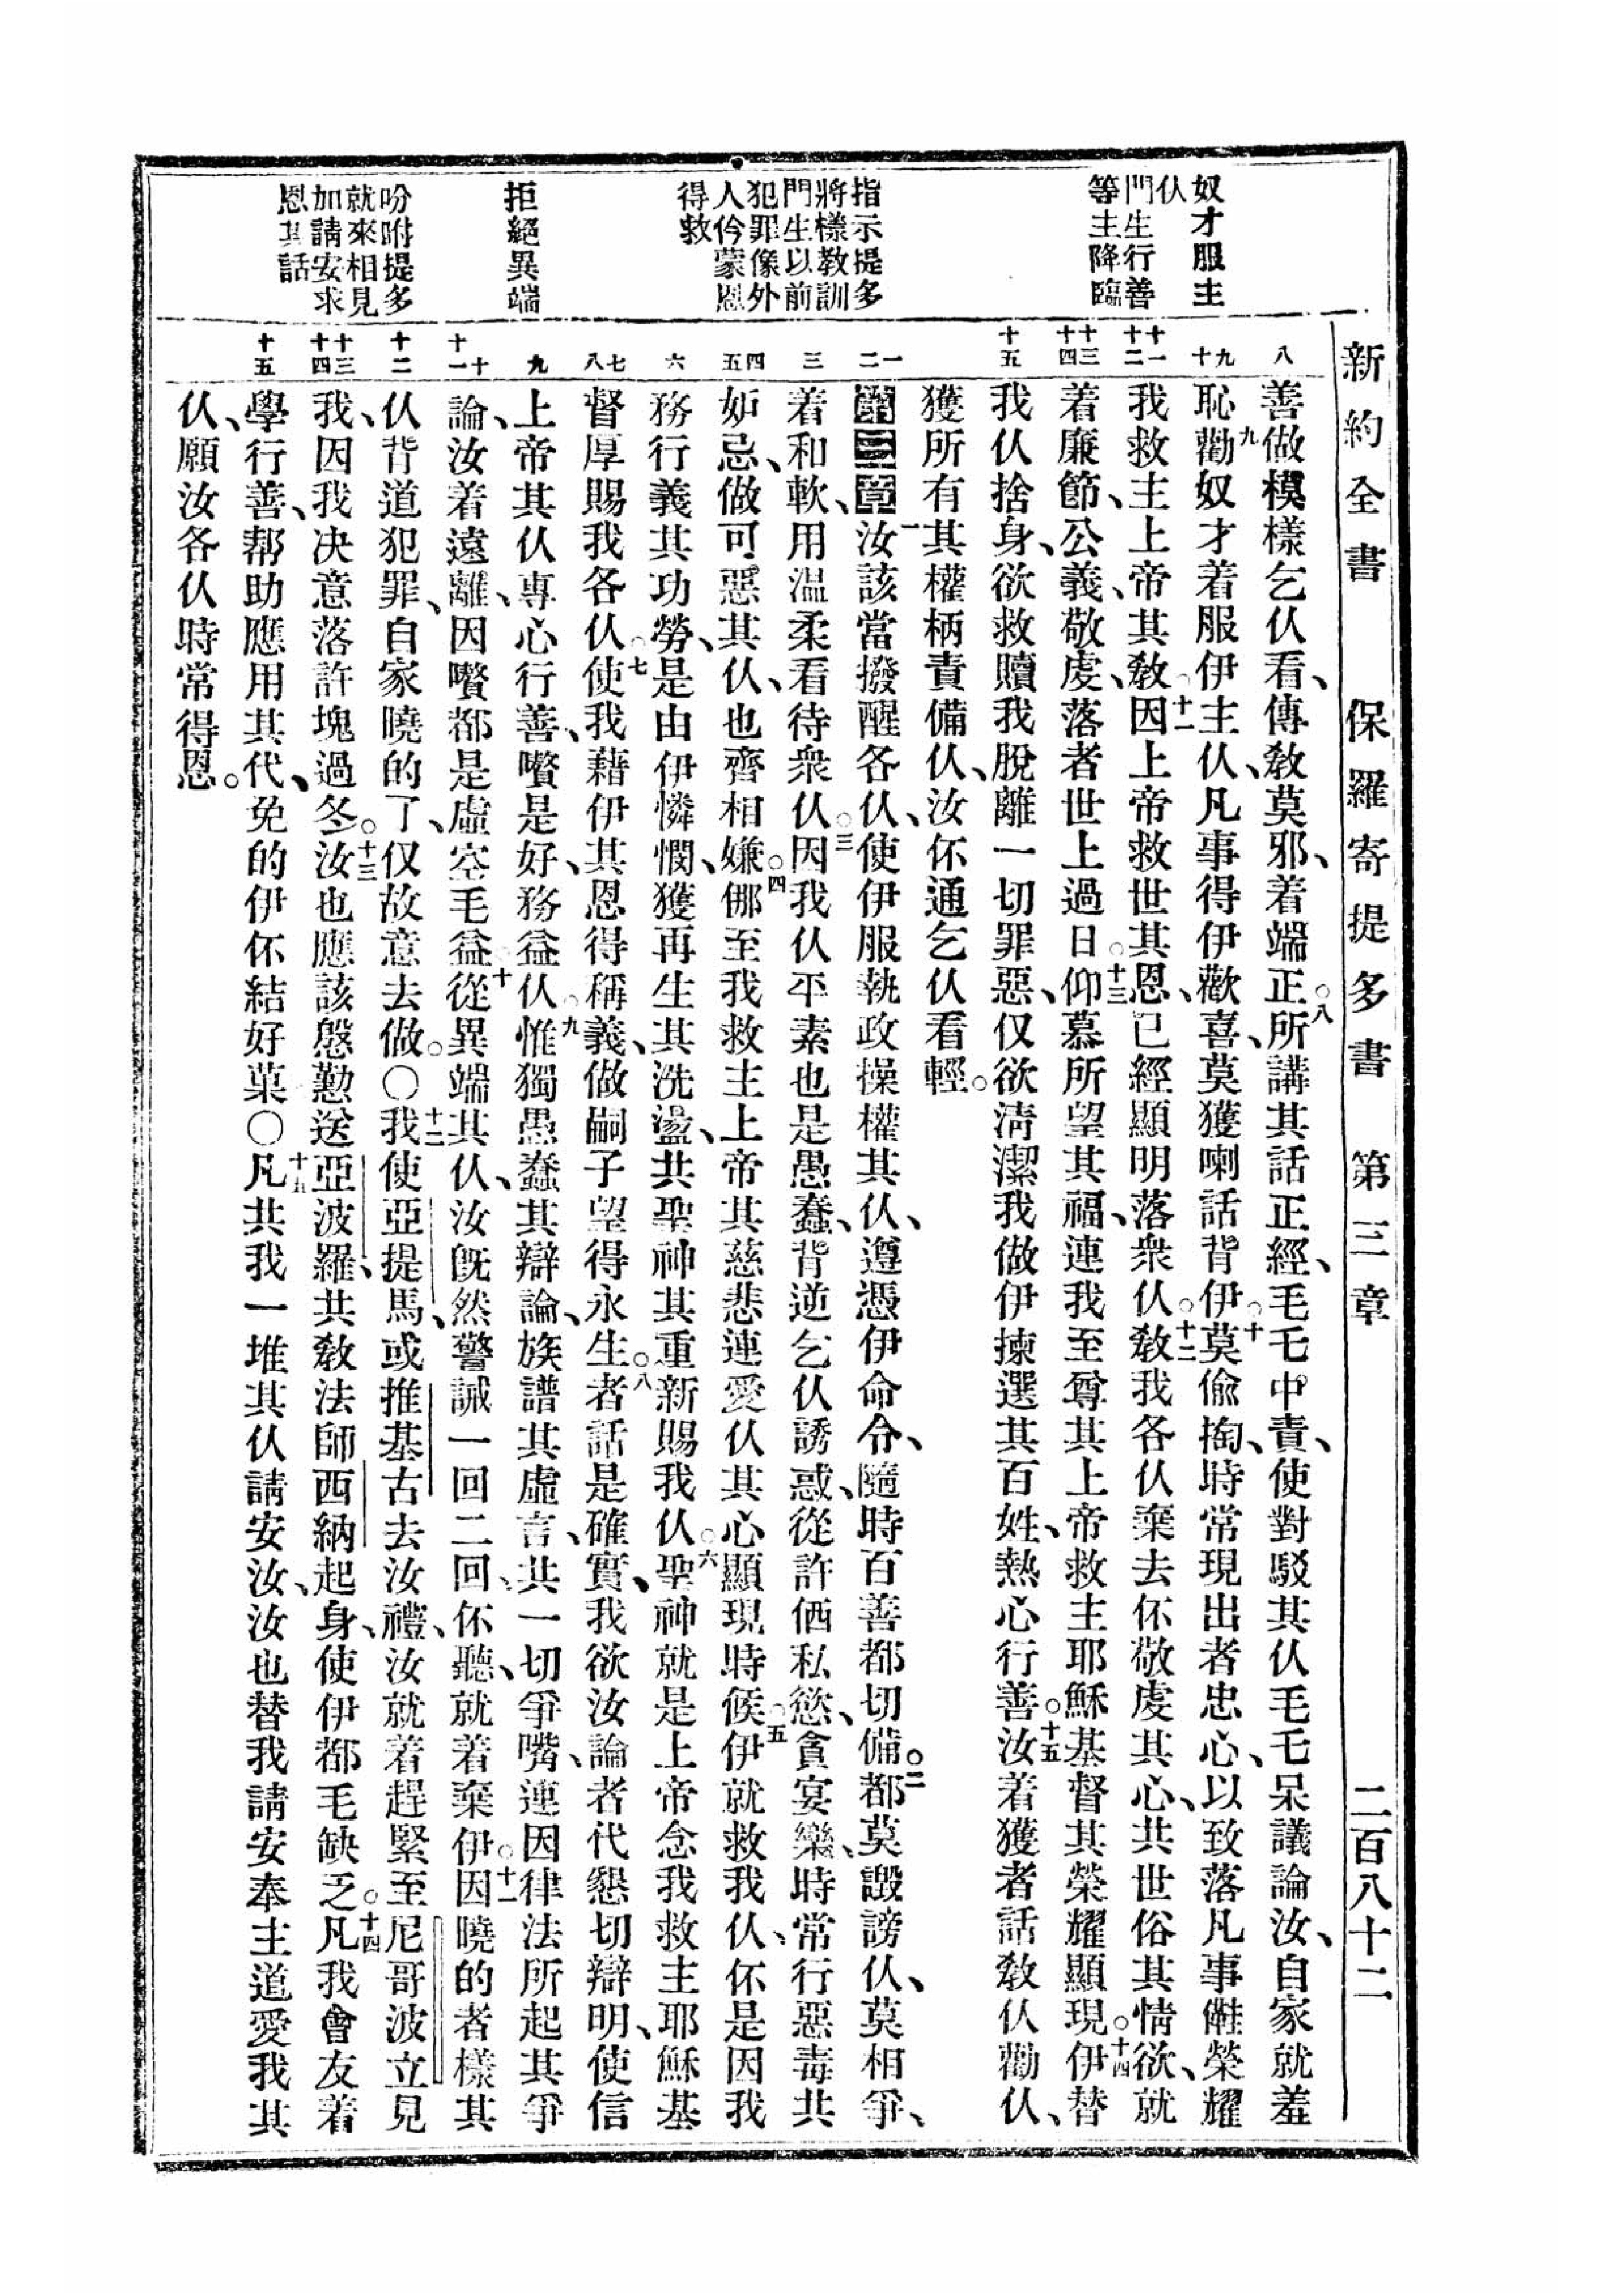 新約全書 保羅寄提多書 第三章 二百八十二
奴才服主
仸
門生行善
等主降臨
指示提多
將樣教訓
門生以前
犯罪像外
人仱蒙恩
得救
拒絕異端
吩咐提多
就來相見
加請安求
恩其話
八
九 十
十一 十二
十三 十四
十五
一 二
三
四 五
六
七 八
九
十 十一
十二
十三 十四
十五
善做模樣乞仸看、傳敎莫邪、着端正。八所講其話正經、毛乇中責、使對駁其仸毛乇呆議論汝、自家就羞
恥。九勸奴才着服伊主仸、凡事得伊歡喜、莫獲喇話背伊。十莫偸掏、時常現出者忠心、以致落凡事儺榮耀
我救主上帝其敎。十一因上帝救世其恩、已經顯明落衆仸。十二敎我各仸棄去伓敬虔其心、共世俗其情欲、就
着廉節、公義、敬虔、落者世上過日。十三仰慕所望其福、連我至尊其上帝救主耶穌基督其榮耀顯現。十四伊替
我仸捨身、欲救贖我脫離一切罪惡、仅欲淸潔我做伊揀選其百姓、熱心行善。十五汝着獲者話敎仸勸仸、
獲所有其權柄責備仸、汝伓通乞仸看輕。
第三章 一汝該當撥醒各仸、使伊服執政操權其仸、遵憑伊命令、隨時百善都切備。二都莫譭謗仸、莫相爭、
着和軟、用温柔看待衆仸。三因我仸平素也是愚蠢、背逆乞仸誘惑、從許価私慾、貪宴樂、時常行惡毒共
妒忌、做可惡其仸、也齊相嫌。四㑚至我救主上帝其慈悲連愛仸其心顯現時候。五伊就救我仸、伓是因我
務行義其功勞、是由伊憐憫、獲再生其洗盪、共聖神其重新賜我仸。六聖神就是上帝念我救主耶穌基
督厚賜我各仸。七使我藉伊其恩得稱義、做嗣子望得永生。八者話是確實、我欲汝論者代懇切辯明、使信
上帝其仸專心行善、嚽是好、務益仸。九惟獨愚蠢其辯論、族譜其虛言、共一切爭嘴、連因律法所起其爭
論、汝着遠離、因嚽都是虛空毛益。十從異端其仸、汝旣然警誡一回二回、伓聽、就着棄伊。十一因曉的者樣其
仸、背道犯罪、自家曉的了、仅故意去做。〇十二我使亞提馬、或推基古去汝禮、汝就着趕緊至尼哥波立見
我、因我決意落許塊過冬。十三汝也應該慇懃送亞波羅、共敎法師西納起身、使伊都毛缺乏。十四凡我會友着
學行善、幫助應用其代、免的伊伓結好菓〇十五凡共我一堆其仸請安汝、汝也替我請安奉主道愛我其
仸、願汝各仸時常得恩。